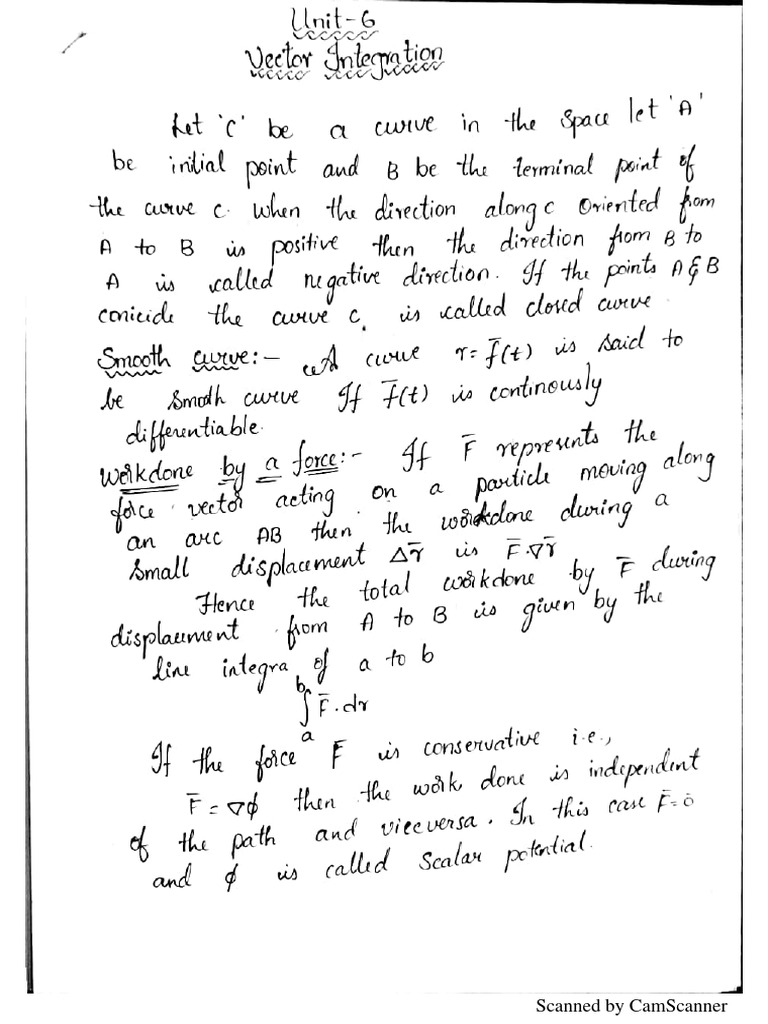 Unit-6
Vector Integration
Let 'C' be a curve in the space let 'A'
be initial point and B be the terminal point of
the curve c. when the direction along c oriented from
A to B is positive then the direction from B to
A is called negative direction. If the points A & B
conicide the curve c, is called closed curve.
Smooth curve:- A curve r = f̄(t) is said to
be smooth curve If f̄(t) is continously
differentiable.
Workdone by a force:- If F̄ represents the
force vector acting on a particle moving along
an arc AB then the workdone during a
small displacement Δr̄ is F̄.∇r̄
Hence the total workdone by F̄ during
displacement from A to B is given by the
line integra of a to b
b
∫ F̄.dr
a
If the force F̄ is conservative i.e.,
F̄ = ∇ϕ then the work done is independent
of the path and viceversa. In this case F̄=ō
and ϕ is called Scalar potential.
Scanned by CamScanner